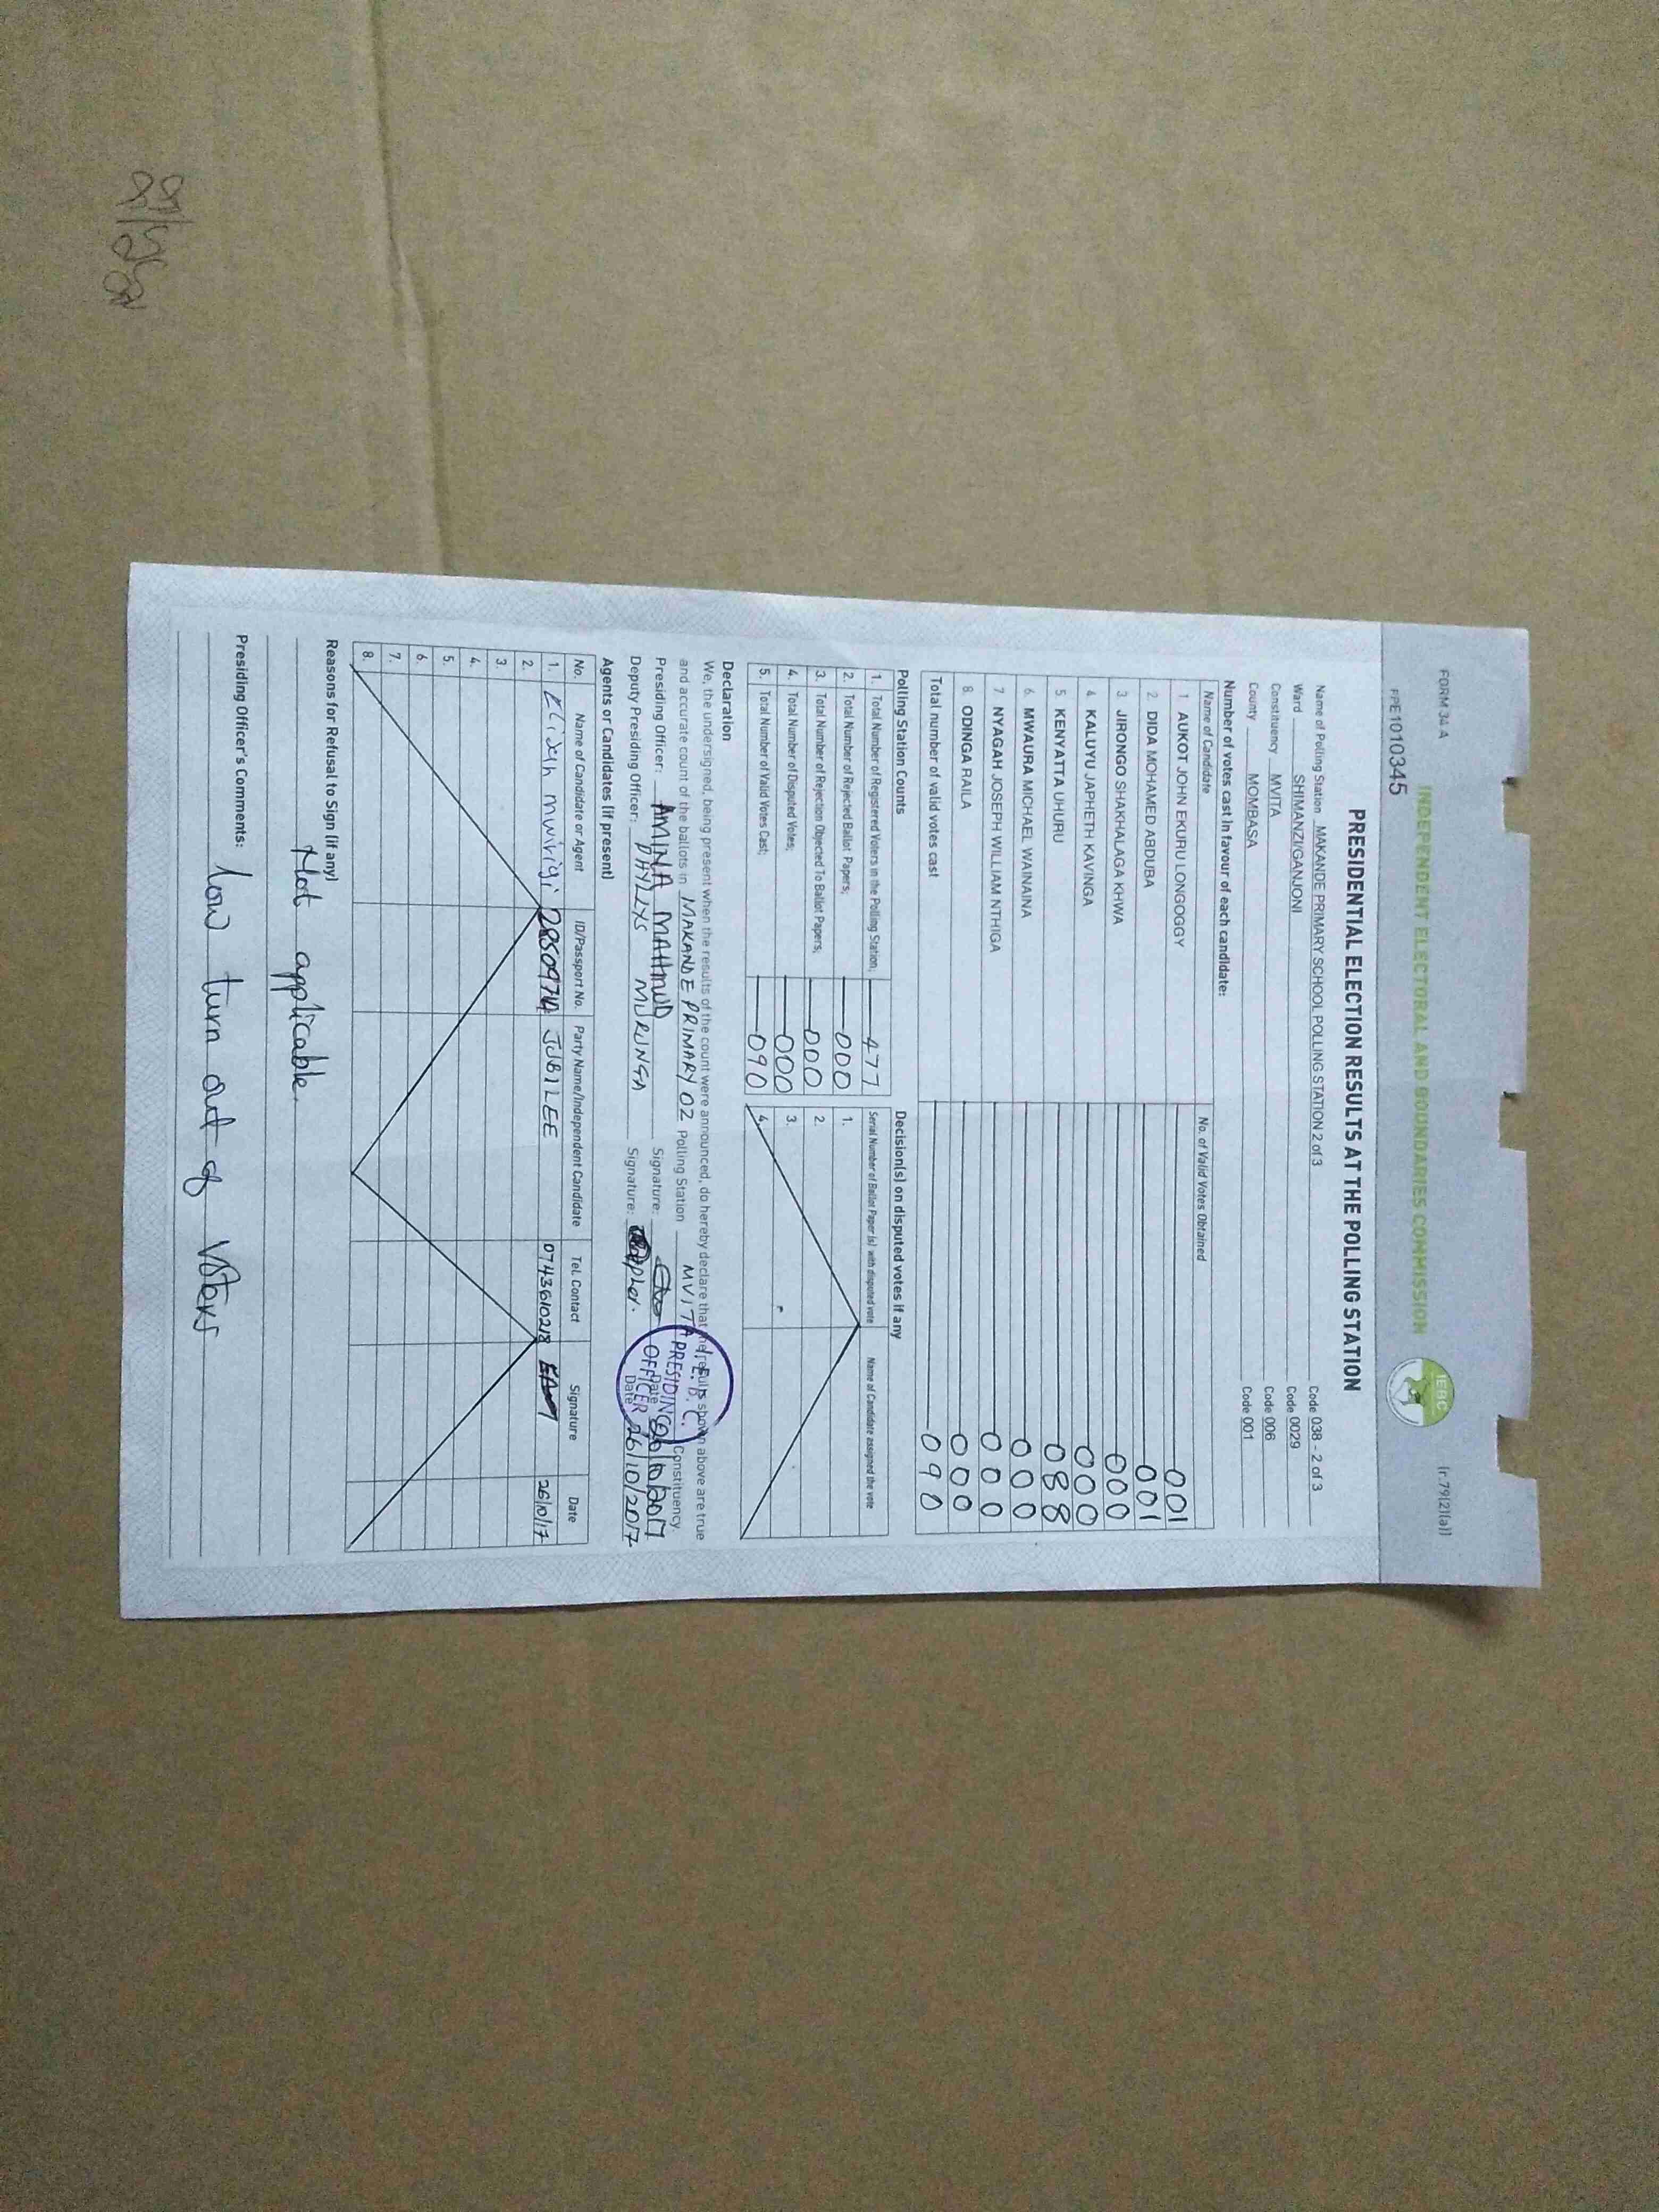 FORM 34 A
(r.79(2)(a))
INDEPENDENT ELECTORAL AND BOUNDARIES COMMISSION
IEBC
PPE1010345
PRESIDENTIAL ELECTION RESULTS AT THE POLLING STATION
Name of Polling Station MAKANDE PRIMARY SCHOOL POLLING STATION 2 of 3 Code 038 - 2 of 3
Ward SHIMANZI/GANJONI Code 0029
Constituency MVITA Code 006
County MOMBASA Code 001
Number of votes cast in favour of each candidate:
Name of Candidate No. of Valid Votes Obtained
1 AUKOT JOHN EKURU LONGOGGY 001
2 DIDA MOHAMED ABDUBA 001
3 JIRONGO SHAKHALAGA KHWA 000
4 KALUYU JAPHETH KAVINGA 000
5 KENYATTA UHURU 088
6 MWAURA MICHAEL WAINAINA 000
7 NYAGAH JOSEPH WILLIAM NTHIGA 000
8 ODINGA RAILA 000
Total number of valid votes cast 090
Polling Station Counts Decision(s) on disputed votes if any
1. Total Number of Registered Voters in the Polling Station; 477 Serial Number of Ballot Paper (s) with disputed vote Name of Candidate assigned the vote
2. Total Number of Rejected Ballot Papers; 000 1.
3. Total Number of Rejection Objected To Ballot Papers; 000 2.
4. Total Number of Disputed Votes; 000 3.
5. Total Number of Valid Votes Cast; 090 4.
Declaration
We, the undersigned, being present when the results of the count were announced, do hereby declare that the results shown above are true
and accurate count of the ballots in MAKANDE PRIMARY 02 Polling Station MVITA Constituency.
Presiding Officer: AMINA MAHMUD Signature: Date 26/10/2017
Deputy Presiding Officer: PHYLXS MURUNGA Signature: Date 26/10/2017
I.E.B.C.
PRESIDING
OFFICER
Agents or Candidates (if present)
No. Name of Candidate or Agent ID/Passport No. Party Name/Independent Candidate Tel. Contact Signature Date
1. Elijah mwirigi JUBILEE 0743610218 26/10/17
2.
3.
4.
5.
6.
7.
8.
Reasons for Refusal to Sign (if any)
Not applicable.
Presiding Officer's Comments: low turn out of voters